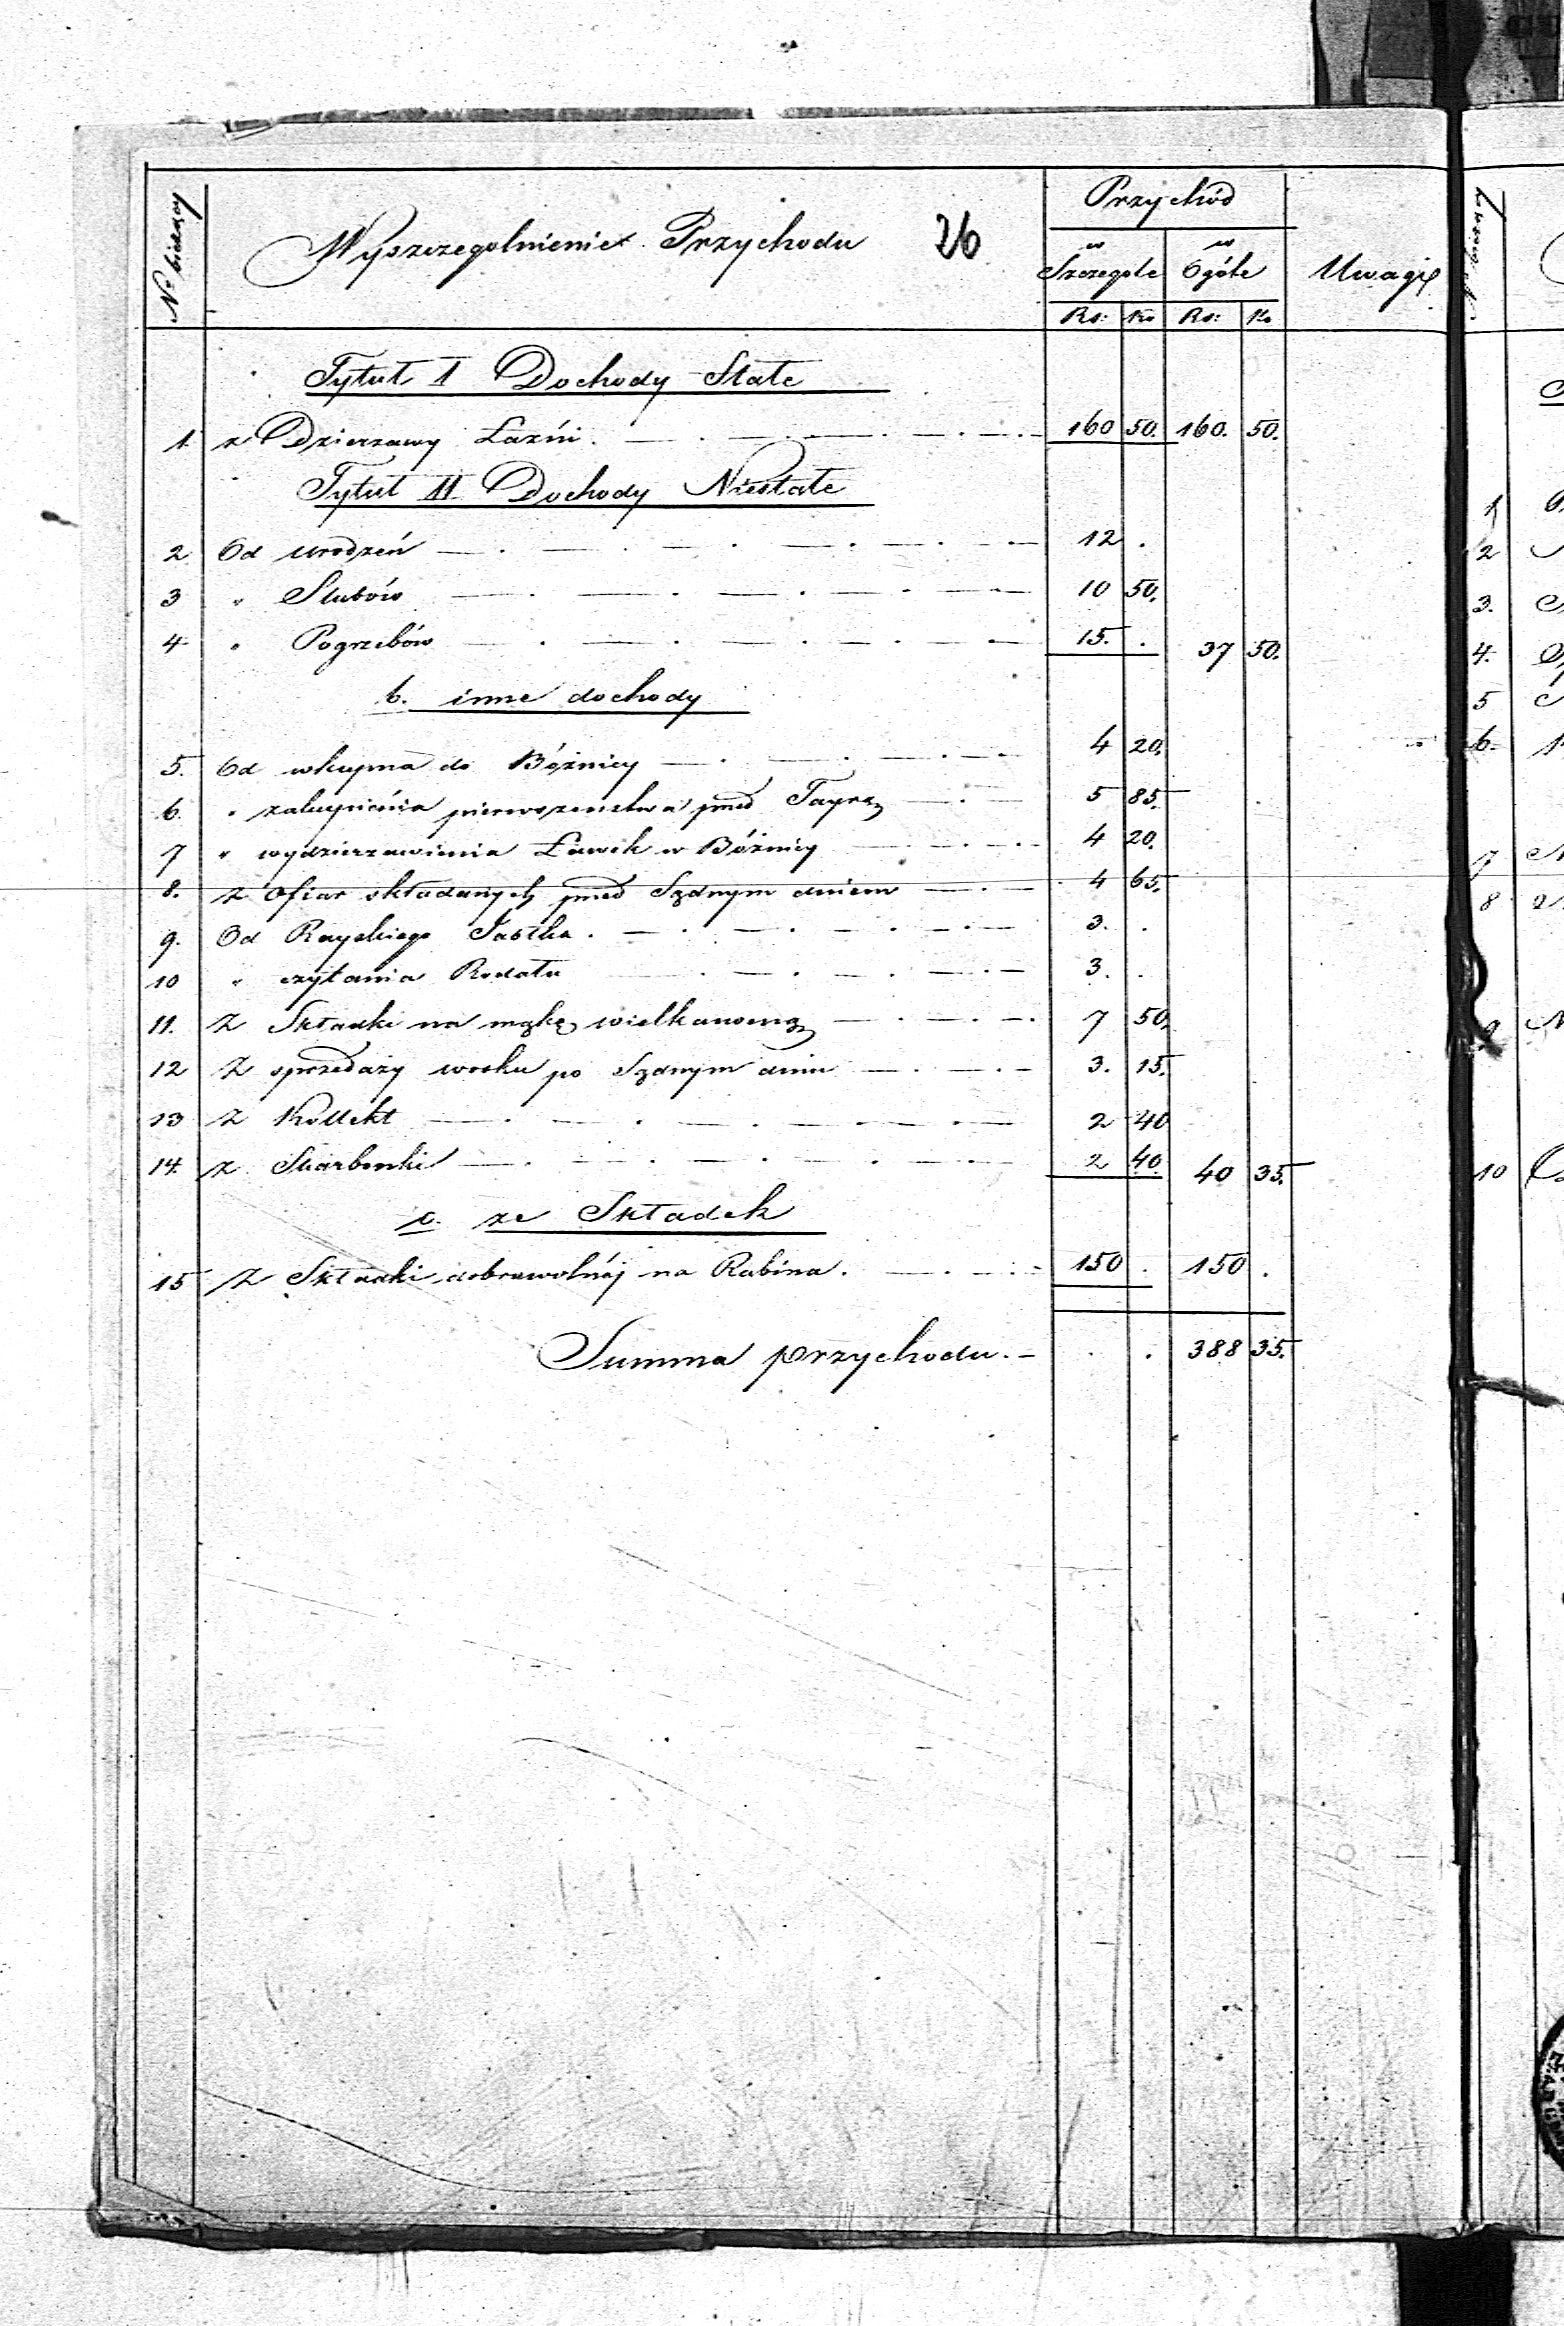 No bieżący
Wyszczegolnienie Przychodu
26
Przychód
w Szczegole
w Ogóle
Uwagi
Rs: Ko Rs: Ko
Tytuł I Dochody Stałe
1. z Dzierzawy Łaźni . 160 50. 160. 50.
Tytuł II Dochody Niestałe
2 Od urodzeń 12 .
3 " Slubów 10 50.
4 " Pogrzebów 15. . 37 50.
b. inne dochody
5. Od wkupna do Bóżnicy 4 20.
6. " zakupienia pierwszenstwa przed 5 85.
7 " wydzierzawienia Ławek w Bóżnicy 4 20.
8. z Ofiar składanych przed Sądnym dniem 4 65.
9. Od Rayskiego Jabłka . 3. .
10 " czytania Rodału 3. .
11. Z Składki na mąkę wielkanocną 7 50.
12 Z sprzedaży wosku po Sądnym dniu 3. 15.
13 Z Kollekt 2 40
14. z Skarbonki 2 40. 40 35.
c. ze Składek
15 Z Składki dobrowolnéj na Rabina . 150 . 150 .
Summa przychodu . . . 388 35.
1
2
3.
4.
5
6.
7
8
9
10